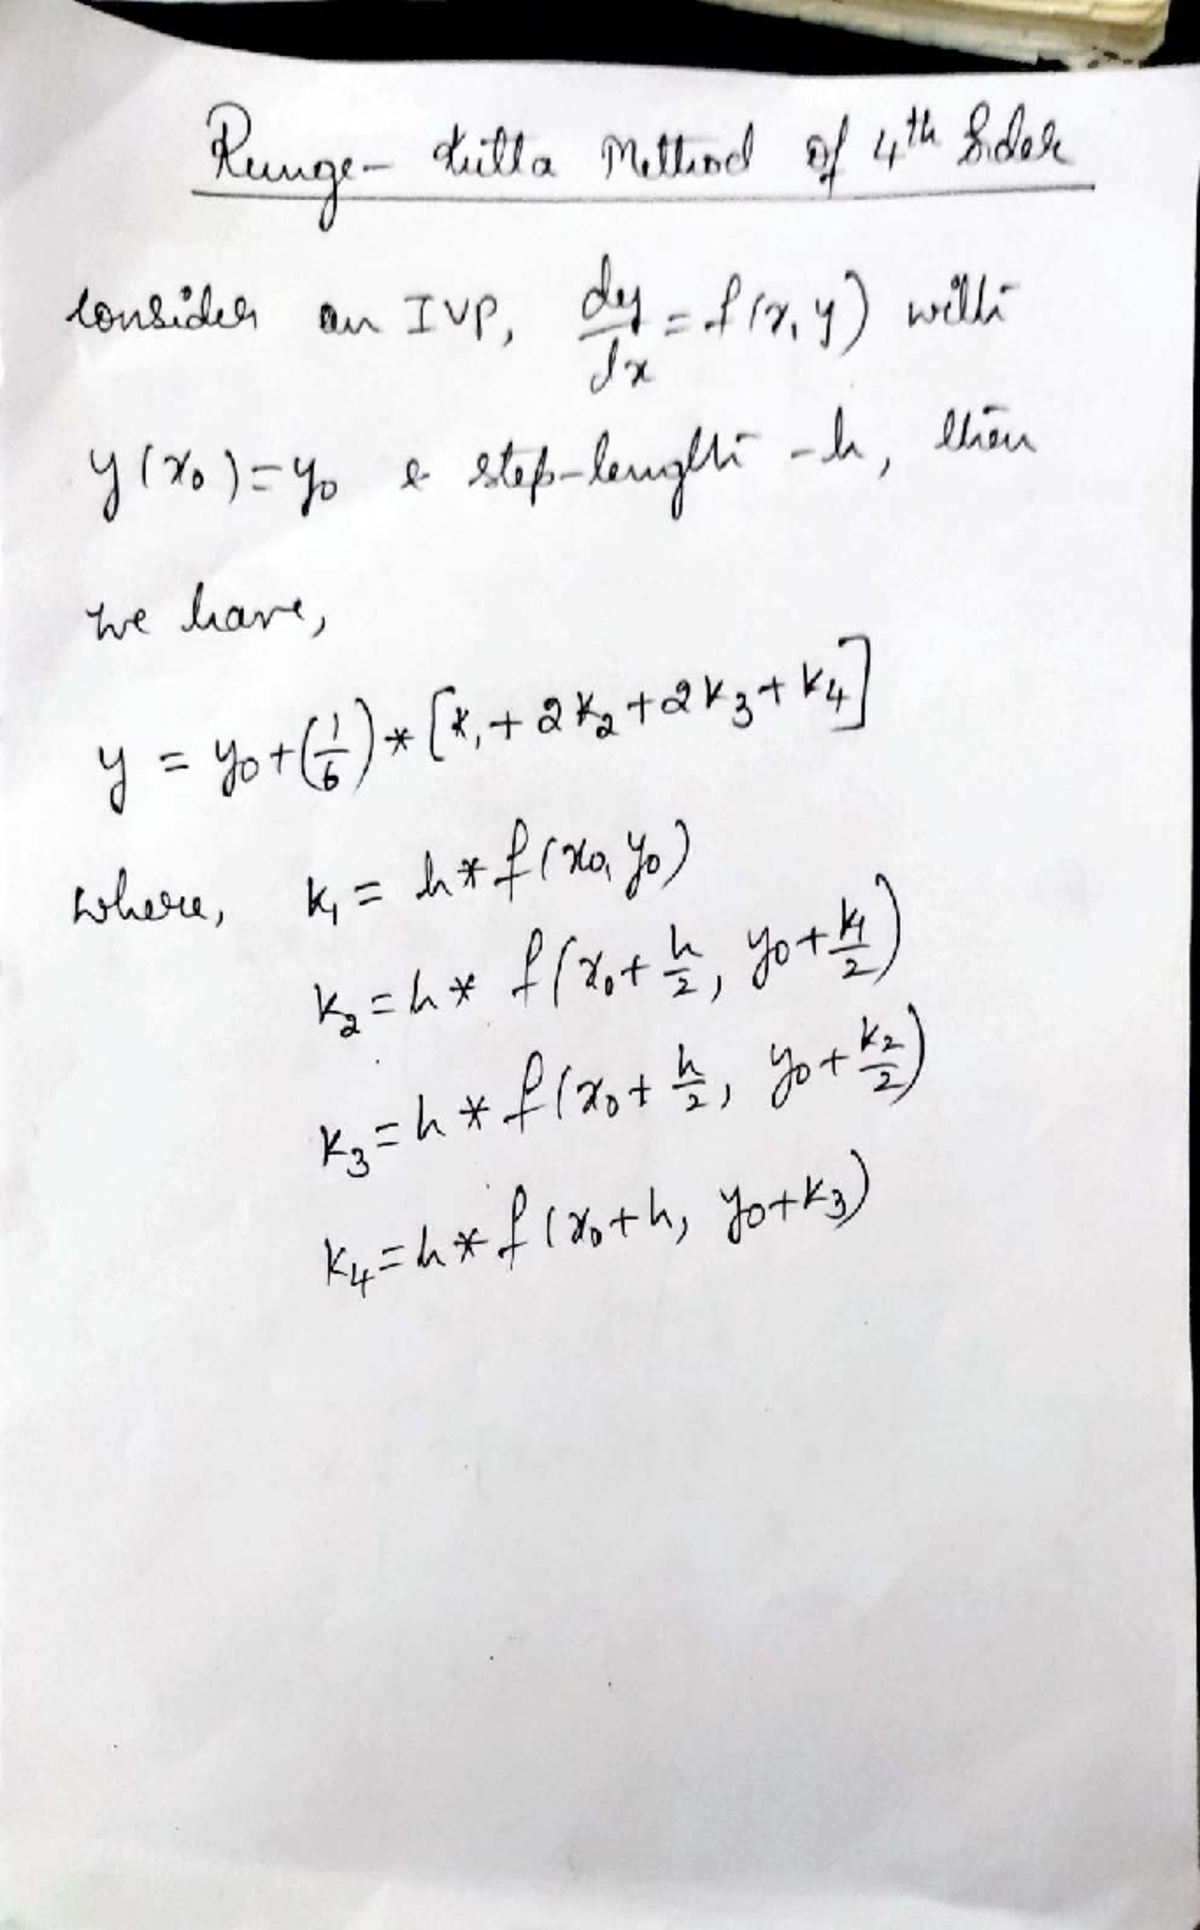 Runge-Kutta Method of 4th Order
Consider an IVP, dy/dx = f(x, y) with
y(x₀) = y₀ & step-length - h, then
we have,
y = y₀ + (1/6) * [k₁ + 2k₂ + 2k₃ + k₄]
where, k₁ = h * f(x₀, y₀)
k₂ = h * f(x₀ + h/2, y₀ + k₁/2)
k₃ = h * f(x₀ + h/2, y₀ + k₂/2)
k₄ = h * f(x₀ + h, y₀ + k₃)